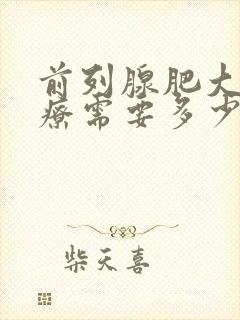 前列腺肥大
疗需要多少
柴天喜